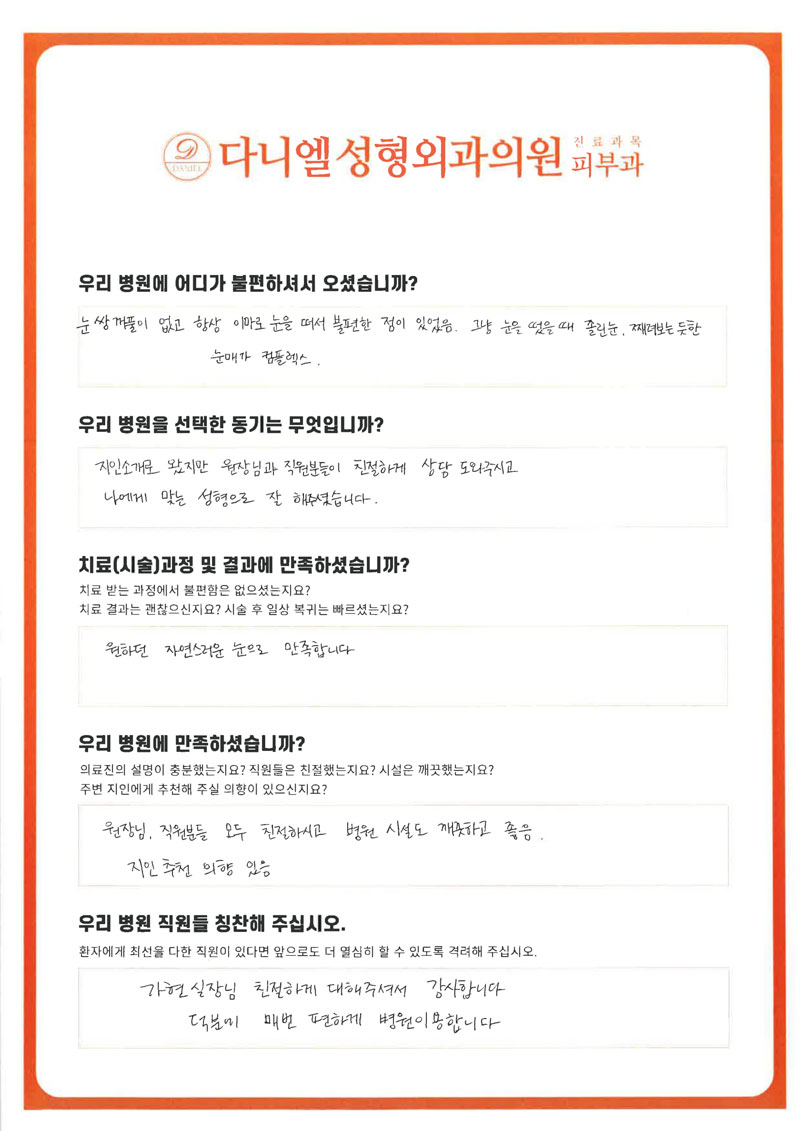 DANIEL
다니엘성형외과의원 진료과목 피부과
우리 병원에 어디가 불편하셔서 오셨습니까?
눈 쌍꺼풀이 없고 항상 이마로 눈을 떠서 불편한 점이 있었음. 그냥 눈을 떴을때 졸린눈, 째려보는 듯한
눈매가 컴플렉스.
우리 병원을 선택한 동기는 무엇입니까?
지인소개로 왔지만 원장님과 직원분들이 친절하게 상담 도와주시고
나에게 맞는 성형으로 잘 해주셨습니다.
치료(시술)과정 및 결과에 만족하셨습니까?
치료 받는 과정에서 불편함은 없으셨는지요?
치료 결과는 괜찮으신지요? 시술 후 일상 복귀는 빠르셨는지요?
원하던 자연스러운 눈으로 만족합니다
우리 병원에 만족하셨습니까?
의료진의 설명이 충분했는지요? 직원들은 친절했는지요? 시설은 깨끗했는지요?
주변 지인에게 추천해 주실 의향이 있으신지요?
원장님, 직원분들 모두 친절하시고 병원 시설도 깨끗하고 좋음.
지인 추천 의향 있음
우리 병원 직원들 칭찬해 주십시오.
환자에게 최선을 다한 직원이 있다면 앞으로도 더 열심히 할 수 있도록 격려해 주십시오.
가현실장님 친절하게 대해주셔서 감사합니다
덕분에 매번 편하게 병원이용합니다